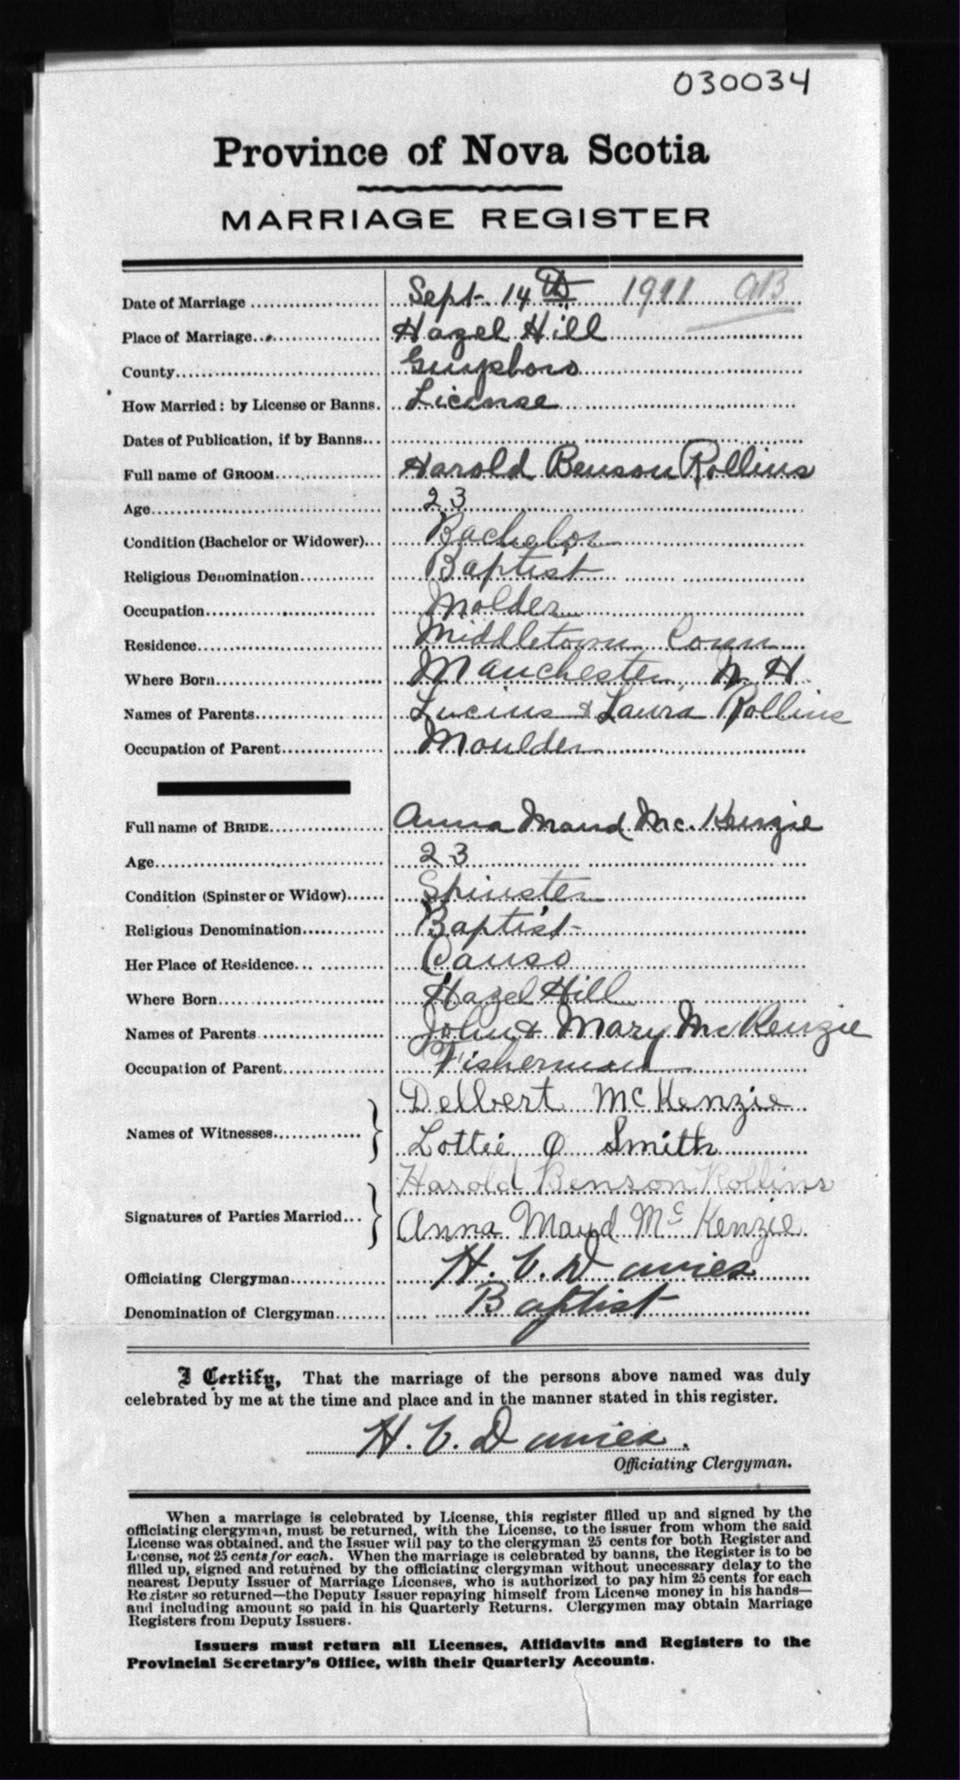 030034
Province of Nova Scotia
MARRIAGE REGISTER
Date of Marriage Sept. 14th 1911 AB
Place of Marriage Hazel Hill
County Guysboro
How Married: by License or Banns. License
Dates of Publication, if by Banns
Full name of GROOM Harold Benson Rollins
Age 23
Condition (Bachelor or Widower) Bachelor
Religious Denomination Baptist
Occupation Molder
Residence Middletown Conn
Where Born Manchester, N H.
Names of Parents Lucius & Laura Rollins
Occupation of Parent Moulder
Full name of BRIDE Anna Maud Mc. Kenzie
Age 23
Condition (Spinster or Widow) Spinster
Religious Denomination Baptist
Her Place of Residence Canso
Where Born Hazel Hill
Names of Parents John & Mary McKenzie
Occupation of Parent Fisherman
Names of Witnesses Delbert McKenzie
Lottie O Smith
Signatures of Parties Married Harold Benson Rollins
Anna Maud McKenzie
Officiating Clergyman H. V. Davies
Denomination of Clergyman Baptist
I Certify, That the marriage of the persons above named was duly
celebrated by me at the time and place and in the manner stated in this register.
H. V. Davies.
Officiating Clergyman.
When a marriage is celebrated by License, this register filled up and signed by the
officiating clergyman, must be returned, with the License, to the issuer from whom the said
License was obtained, and the Issuer will pay to the clergyman 25 cents for both Register and
License, not 25 cents for each. When the marriage is celebrated by banns, the Register is to be
filled up, signed and returned by the officiating clergyman without unecessary delay to the
nearest Deputy Issuer of Marriage Licenses, who is authorized to pay him 25 cents for each
Register so returned—the Deputy Issuer repaying himself from License money in his hands—
and including amount so paid in his Quarterly Returns. Clergymen may obtain Marriage
Registers from Deputy Issuers.
Issuers must return all Licenses, Affidavits and Registers to the
Provincial Secretary's Office, with their Quarterly Accounts.